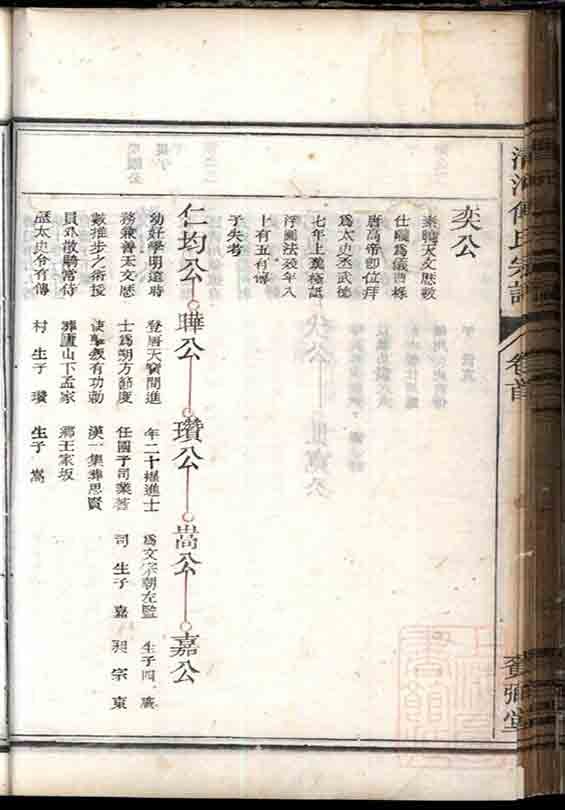 清河傅氏宗譜
卷首
賚弼堂
奕公
素曉天文歷數
仕隋為儀曹椽
唐高帝即位拜
為太史丞武德
七年上漢極詆
浮圖法殁年八
十有五有傳
子失考
仁均公
幼好學明道時
務兼善天文歷
數推步之術授
員外散騎常侍
歷太史令有傳
曄公
登唐天寶間進
士為朔方節度
使有功勅
葬廬山下孟家
村 生子 瓚
瓚公
年二十擢進士
任國子司業著
漢一集葬思賢
鄉王家坂
生子 嵩
嵩公
為文宗朝左監
司 生子 嘉
嘉公
生子四 廣
宗 東